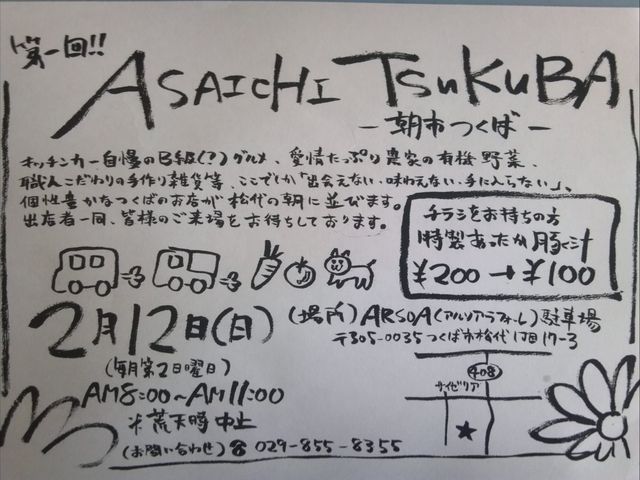 第一回!!
ASAICHI TSUKUBA
－朝市つくば－
キッチンカー自慢のB級(?)グルメ、愛情たっぷり農家の有機野菜、
職人こだわりの手作り雑貨等、ここでしか「出会えない・味わえない・手に入らない」、
個性豊かなつくばのお店が松代の朝に並びます。
出店者一同、皆様のご来場をお待ちしております。
チラシをお持ちの方
特製あったか豚汁
¥200→¥100
2月12日(日)
(毎月第2日曜日)
AM8:00～AM11:00
※荒天時中止
(お問い合わせ)☎029-855-8355
(場所)ARSOA(アルソアラフォーレ)駐車場
〒305-0035つくば市松代1丁目17-3
408
サイゼリア